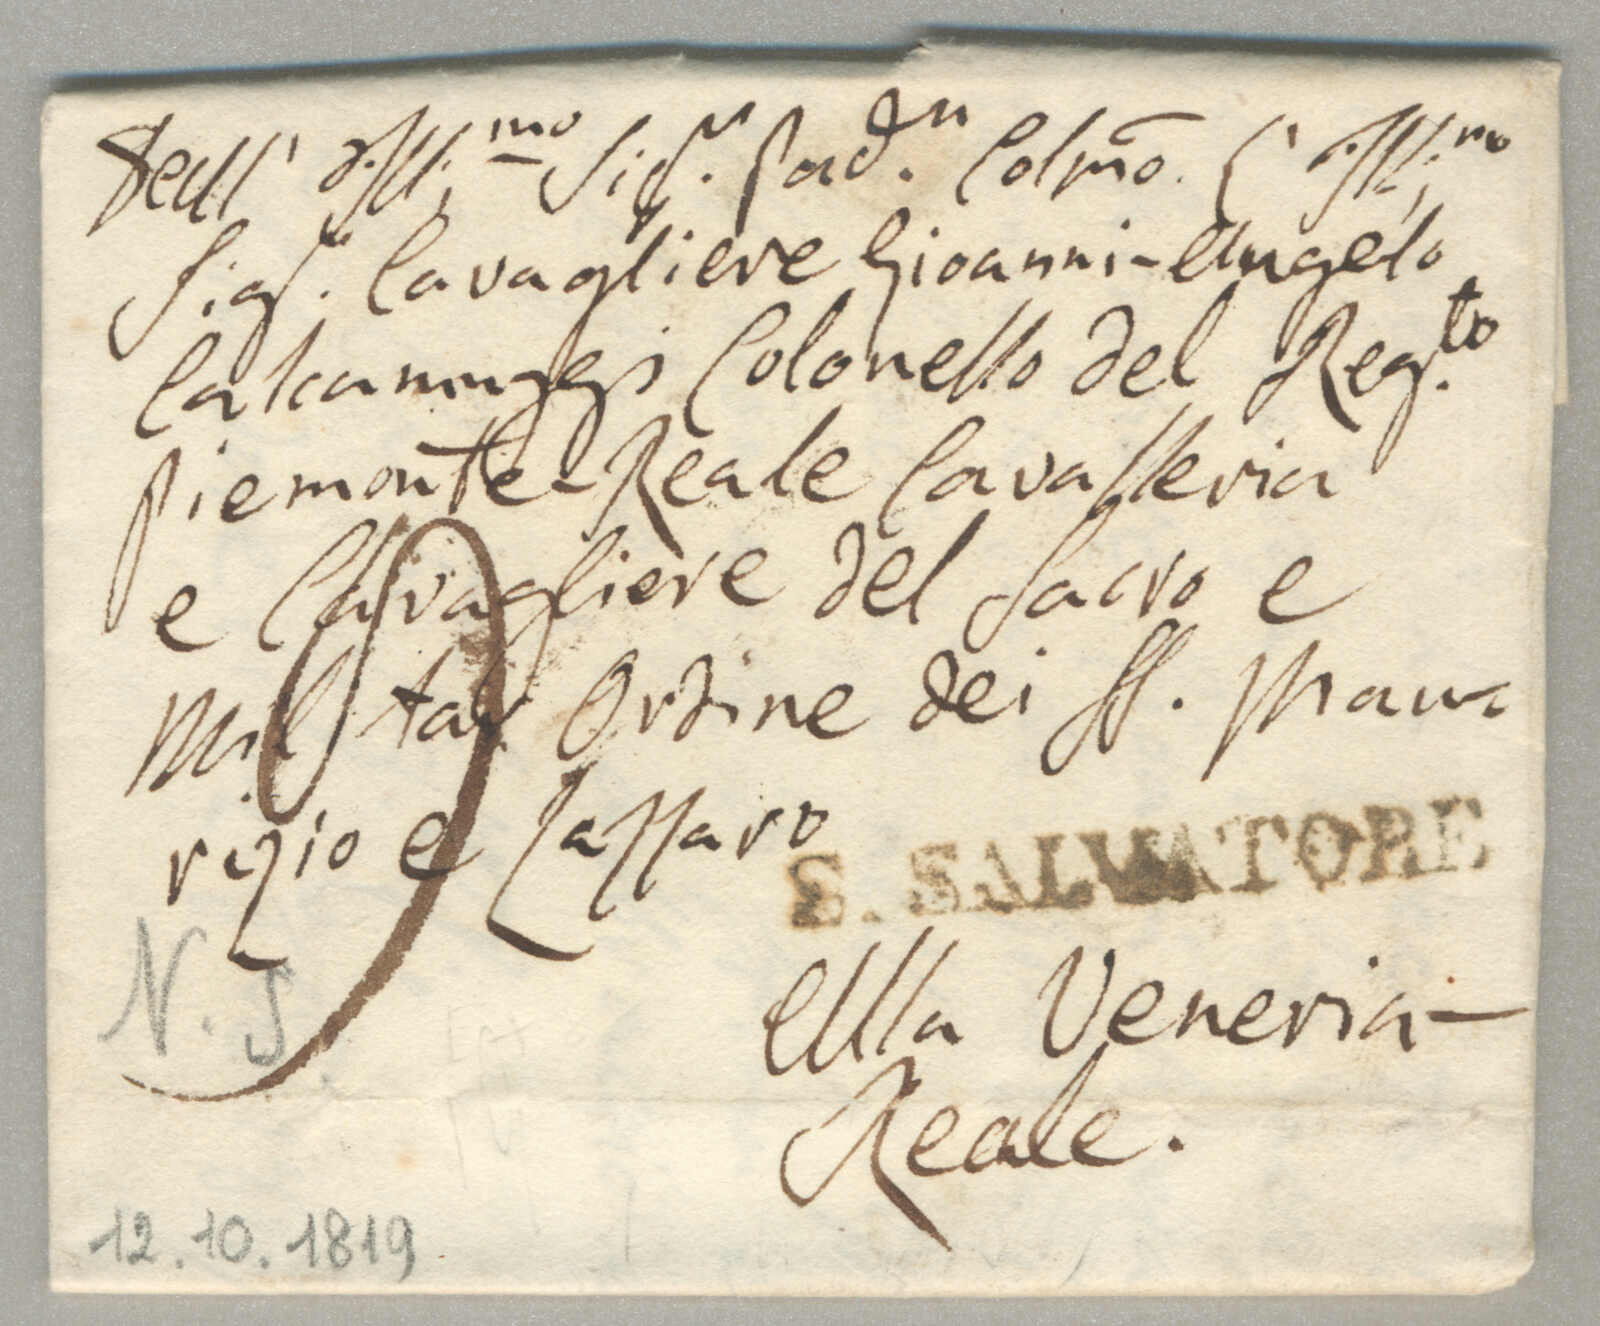 Dell' Ill.mo Sig.r Pad.n Colmo. L' Ill.mo
Sig.r Cavagliere Gioanni-Angelo
Calcamuggi Colonello del Reg.to
Piemonte-Reale Cavalleria
e Cavagliere del Sacro e
Militar Ordine dei SS. Mau-
rizio e Lazzaro
S. SALVATORE
Alla Veneria-
Reale.
9
N. J.
12.10.1819